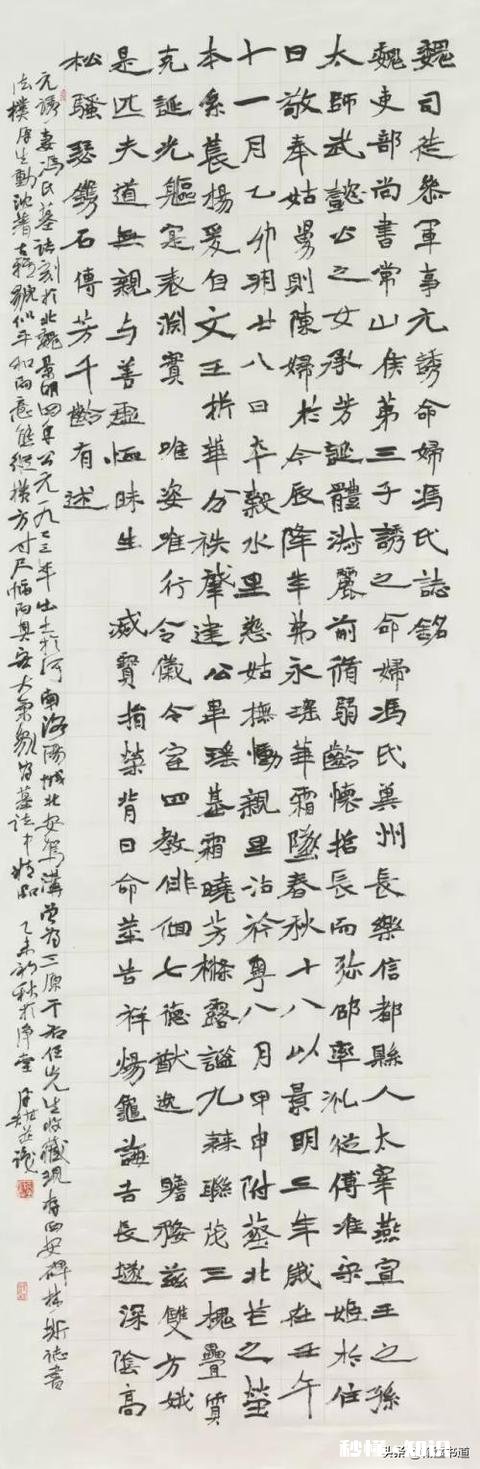 魏司徒參軍事元誘命婦馮氏誌銘
魏吏部尚書常山侯第三子誘之命婦馮氏冀州長樂信都縣人太宰燕宣王之孫
太師武懿公之女承芳誕體淑麗前脩弱齡懷哲長而彌邵率礼從傅准梁姬於往
日敬奉姑舅則陳婦於今辰降年弗永瑤華霜墜春秋十八以景明三年歲在壬午
十一月乙卯朔廿八日卒穀水里慈姑撫慟親里沾衿粵八月甲申附葬北芒之塋
本系萇楊爰自文王析華分袟肇建公畢瑤基霜曉芳樤露謐九蕀聯茂三槐疊質
克誕光軀寔表淵賓 唯姿唯行令儀令室四教俳佪七德猷逸 瞻務茲雙方娥
是匹夫道無親与善虛恆昧生 滅寶捐榮背日命筮告祥煬龜誨吉長墜深陰高
松騷瑟鐫石傳芳千齡有述
元誘妻馮氏墓誌刻於北魏景明四年公元一九二三年出土於河南洛陽城北安駕溝曾為三原于右任先生收藏現存西安碑林斯誌書
法樸厚生動沈着古雅貌似平和而意態縱橫方寸尺幅而具大氣象為墓誌中精品 乙未初秋於淨堂 莊識